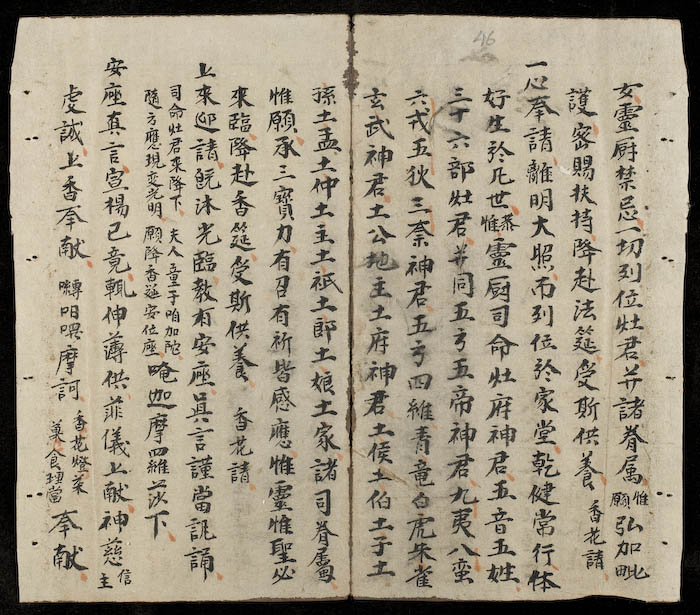 46
女靈厨禁忌一切列位灶君并諸眷属惟願弘加毗
護密賜扶持降赴法筵受斯供養 香花請
一心奉請離明大照而列位於家堂乾健常行体
好生於凡世恭惟靈厨司命灶府神君五音五姓
三十六部灶君并同五方五帝神君九夷八蛮
六戎五狄三秦神君五方四維青竜白虎朱雀
玄武神君土公地主土府神君土侯土伯土子土
孫土孟土仲土主土祇土郎土娘土家諸司眷屬
惟願承三寶力有召有祈皆感應惟靈惟聖必
來臨降赴香筵受斯供養 香花請
上來迎請旣沐光臨教有安座真言謹當諷誦
司命灶君来降下 夫人童子咱加陀
隨方應現变光明 願降香筵安位座 唵迦摩四維莎下
安座真言宣楊已竟輒伸薄供菲儀上献神慈信主
虔誠上香奉献 摩訶 香花燈菜菓食理當奉献